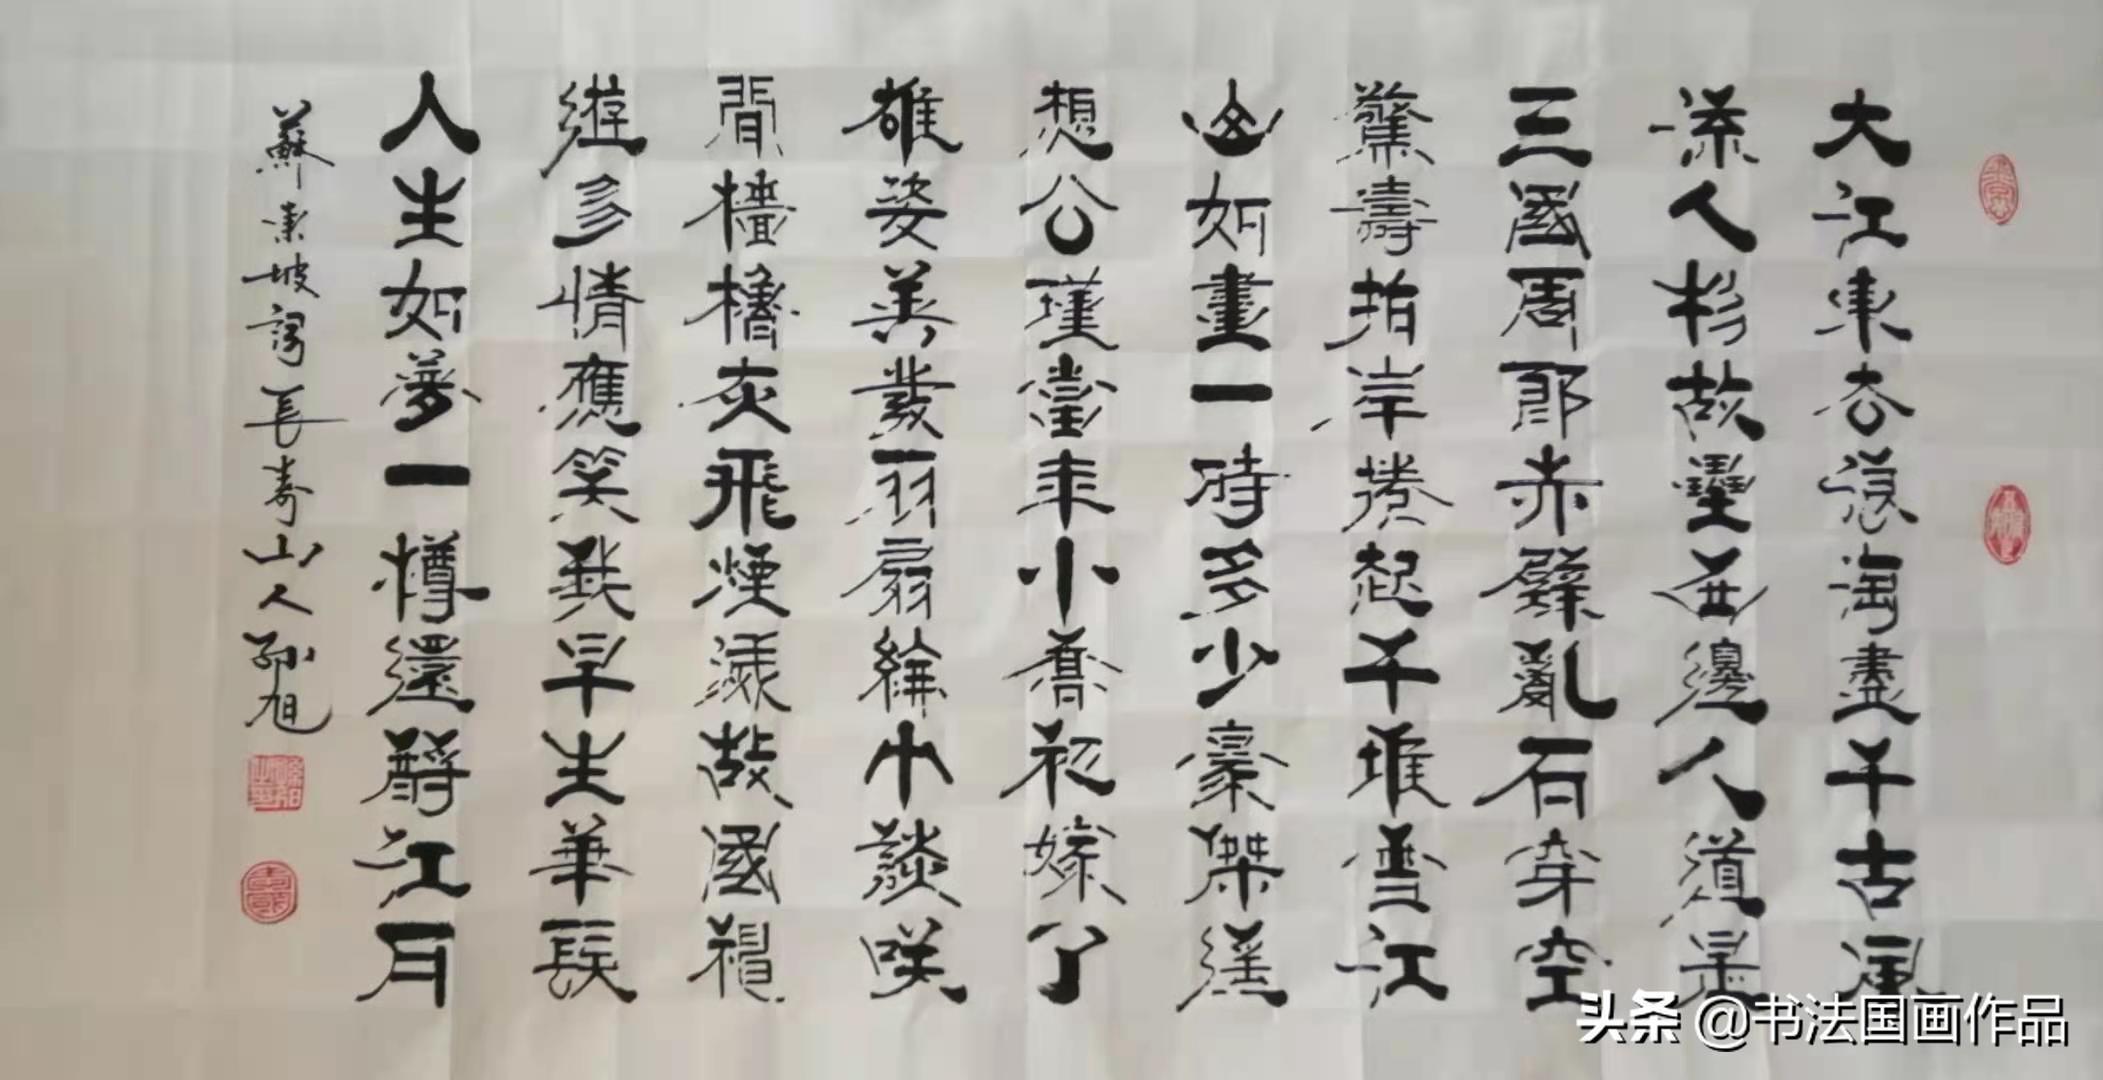 大江東去浪淘盡千古風
流人物故壘西邊人道是
三國周郎赤壁亂石穿空
驚濤拍岸捲起千堆雪江
山如畫一時多少豪傑遙
想公瑾當年小喬初嫁了
雄姿英發羽扇綸巾談咲
間檣櫓灰飛煙滅故國神
遊多情應笑我早生華髮
人生如夢一樽還酹江月
蘇東坡詞長壽山人孫旭
头条 @书法国画作品